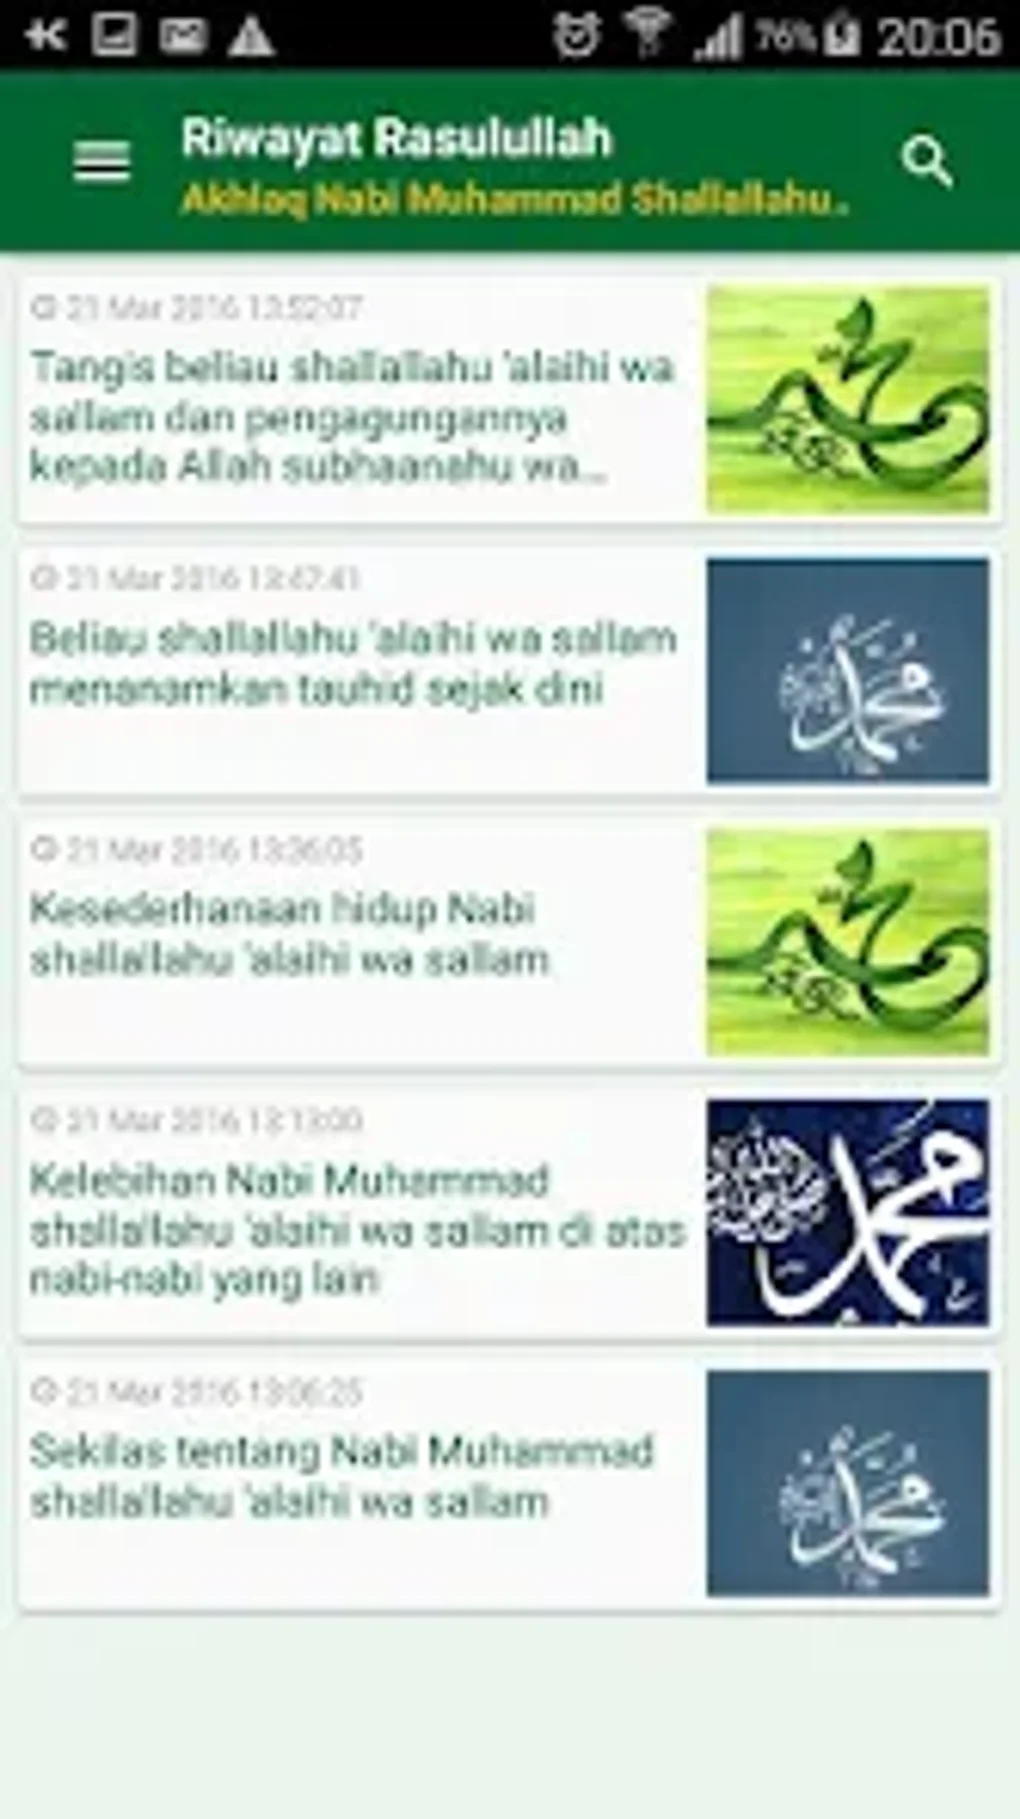 76% 20:06
Riwayat Rasulullah
Akhlaq Nabi Muhammad Shallallahu..
21 Mar 2016 13:52:07
Tangis beliau shallallahu 'alaihi wa
sallam dan pengagungannya
kepada Allah subhaanahu wa...
21 Mar 2016 13:47:41
Beliau shallallahu 'alaihi wa sallam
menanamkan tauhid sejak dini
محمد
21 Mar 2016 13:36:05
Kesederhanaan hidup Nabi
shallallahu 'alaihi wa sallam
21 Mar 2016 13:13:00
Kelebihan Nabi Muhammad
shallallahu 'alaihi wa sallam di atas
nabi-nabi yang lain
محمد
21 Mar 2016 13:06:25
Sekilas tentang Nabi Muhammad
shallallahu 'alaihi wa sallam
محمد